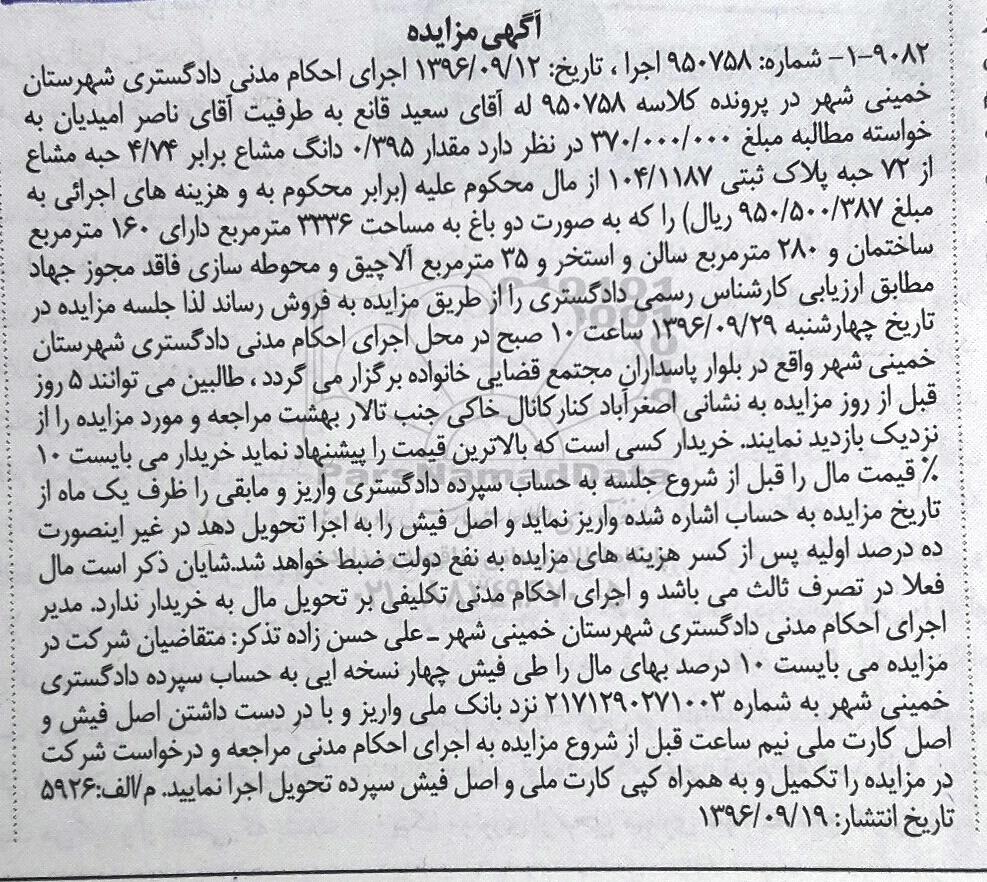 آگهی مزایده
۱-۹۰۸۲- شماره: ۹۵۰۷۵۸ اجرا ، تاریخ: ۱۳۹۶/۰۹/۱۲ اجرای احکام مدنی دادگستری شهرستان
خمینی شهر در پرونده کلاسه ۹۵۰۷۵۸ له آقای سعید قانع به طرفیت آقای ناصر امیدیان به
خواسته مطالبه مبلغ ۳۷۰/۰۰۰/۰۰۰ در نظر دارد مقدار ۰/۳۹۵ دانگ مشاع برابر ۴/۷۴ حبه مشاع
از ۷۲ حبه پلاک ثبتی ۱۰۴/۱۱۸۷ از مال محکوم علیه (برابر محکوم به و هزینه های اجرائی به
مبلغ ۹۵۰/۵۰۰/۳۸۷ ریال) را که به صورت دو باغ به مساحت ۳۳۳۶ مترمربع دارای ۱۶۰ مترمربع
ساختمان و ۲۸۰ مترمربع سالن و استخر و ۳۵ مترمربع آلاچیق و محوطه سازی فاقد مجوز جهاد
مطابق ارزیابی کارشناس رسمی دادگستری را از طریق مزایده به فروش رساند لذا جلسه مزایده در
تاریخ چهارشنبه ۱۳۹۶/۰۹/۲۹ ساعت ۱۰ صبح در محل اجرای احکام مدنی دادگستری شهرستان
خمینی شهر واقع در بلوار پاسداران مجتمع قضایی خانواده برگزار می گردد ، طالبین می توانند ۵ روز
قبل از روز مزایده به نشانی اصغرآباد کنارکانال خاکی جنب تالار بهشت مراجعه و مورد مزایده را از
نزدیک بازدید نمایند. خریدار کسی است که بالاترین قیمت را پیشنهاد نماید خریدار می بایست ۱۰
٪ قیمت مال را قبل از شروع جلسه به حساب سپرده دادگستری واریز و مابقی را ظرف یک ماه از
تاریخ مزایده به حساب اشاره شده واریز نماید و اصل فیش را به اجرا تحویل دهد در غیر اینصورت
ده درصد اولیه پس از کسر هزینه های مزایده به نفع دولت ضبط خواهد شد.شایان ذکر است مال
فعلا در تصرف ثالث می باشد و اجرای احکام مدنی تکلیفی بر تحویل مال به خریدار ندارد. مدیر
اجرای احکام مدنی دادگستری شهرستان خمینی شهر ـ علی حسن زاده تذکر: متقاضیان شرکت در
مزایده می بایست ۱۰ درصد بهای مال را طی فیش چهار نسخه ایی به حساب سپرده دادگستری
خمینی شهر به شماره ۲۱۷۱۲۹۰۲۷۱۰۰۳ نزد بانک ملی واریز و با در دست داشتن اصل فیش و
اصل کارت ملی نیم ساعت قبل از شروع مزایده به اجرای احکام مدنی مراجعه و درخواست شرکت
در مزایده را تکمیل و به همراه کپی کارت ملی و اصل فیش سپرده تحویل اجرا نمایید. م/الف:۵۹۲۶
تاریخ انتشار: ۱۳۹۶/۰۹/۱۹
ParsNamadData